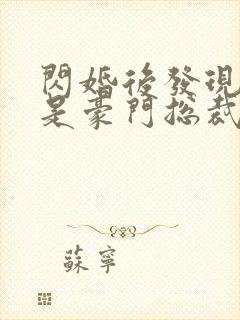 閃婚後發現
是豪門總裁
蘇寧